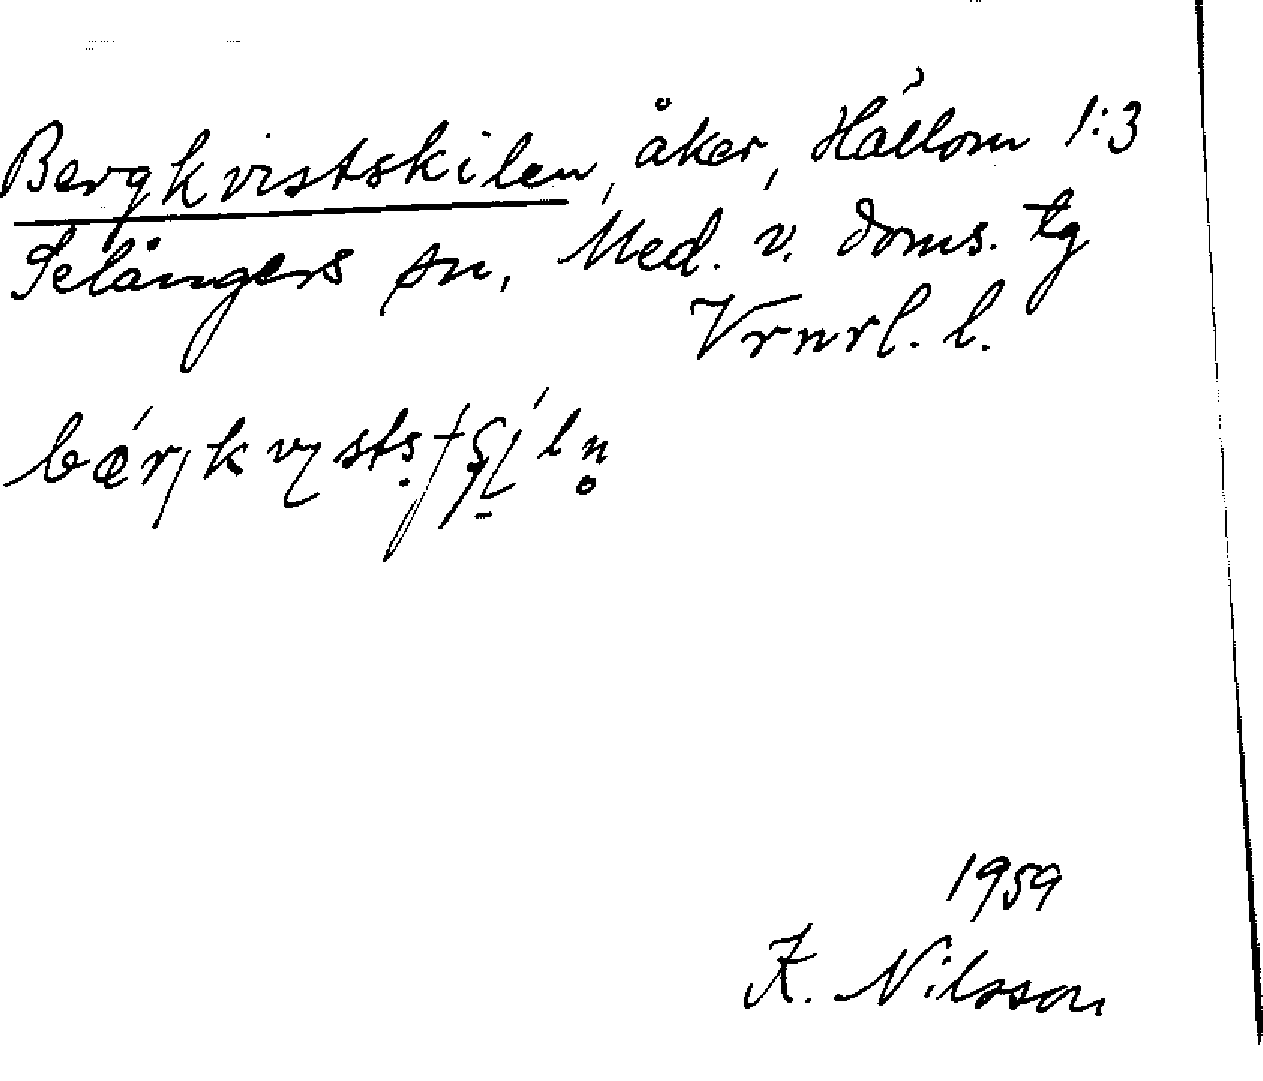 Bergkvistskilen, åker, Hällom 1:3
Selångers sn, Med. v. doms. tg
Vrnrl. l.
1959
K. Nilsson